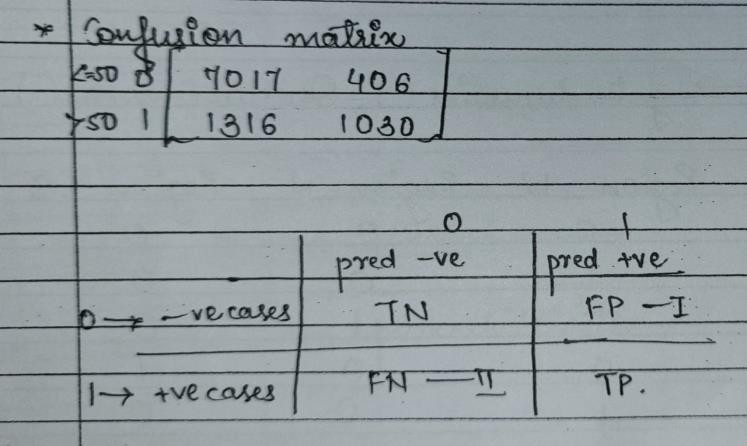 * Confusion matrix
<=50 0 7017 406
>50 1 1316 1030
0 1
pred -ve pred +ve
0 → -ve cases TN FP - I
1 → +ve cases FN - II TP.